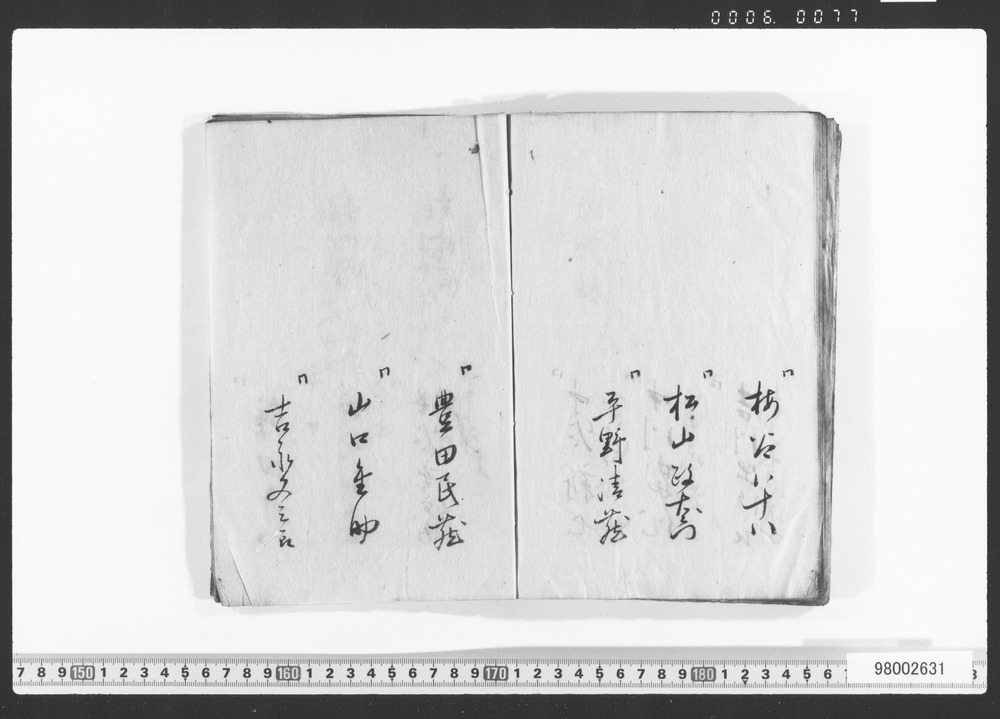 0006. 0077
梅谷八十八
松山政右衛門
平野清蔵
豊田民蔵
山口金助
吉永又三郎
7 8 9 150 1 2 3 4 5 6 7 8 9 160 1 2 3 4 5 6 7 8 9 170 1 2 3 4 5 6 7 8 9 180 1 2 3 4 5 6
98002631